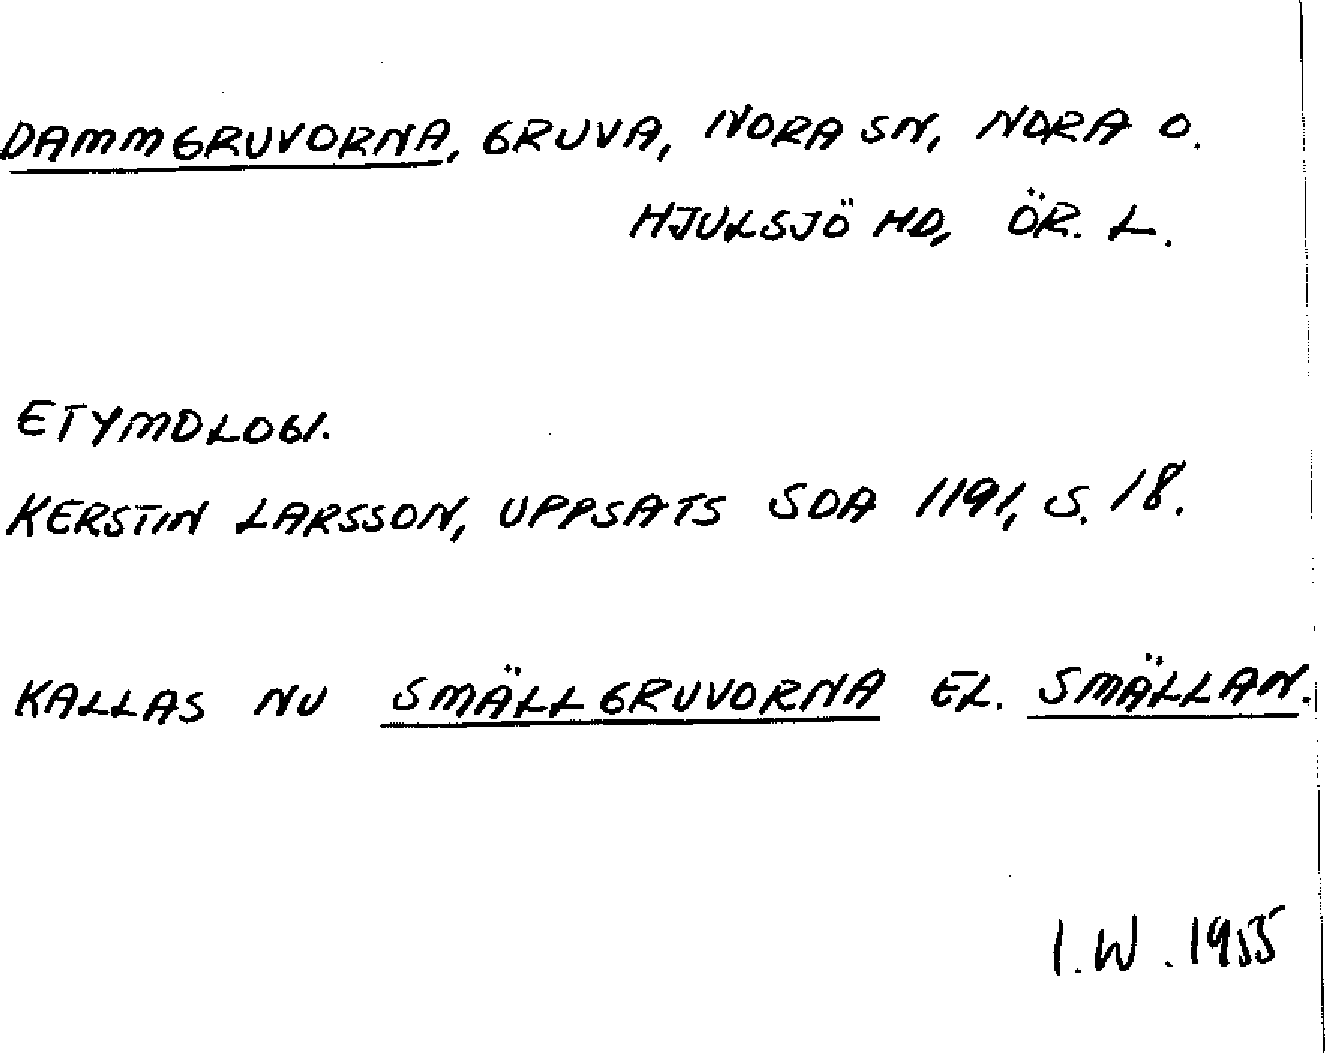 DAMMGRUVORNA, GRUVA, NORA SN, NORA O.
HJULSJÖ HD, ÖR. L.
ETYMOLOGI.
KERSTIN LARSSON, UPPSATS SOA 1191, S. 18.
KALLAS NU SMÄLLGRUVORNA EL. SMÄLLAN.
I.W. 1955